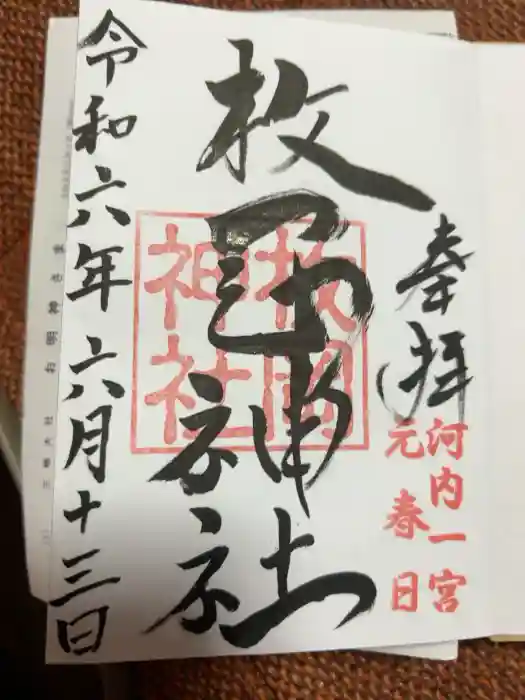 奉拝
河内一宮
元春日
枚岡神社
枚岡
神社
令和六年六月十三日